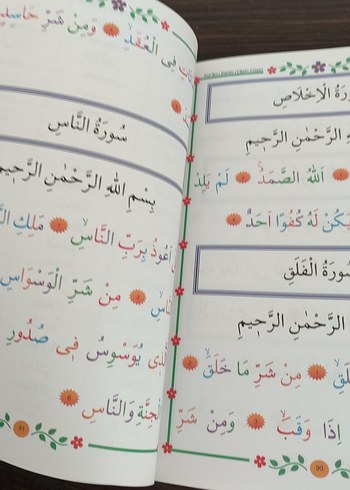 سُورَةُ الْاِخْلَاصِ
اللّٰهِ الرَّحْمٰنِ الرَّحٖيمِ
اَللّٰهُ الصَّمَدُۚ لَمْ يَلِدْ
يَكُنْ لَهُ كُفُوًا اَحَدٌ
سُورَةُ الْفَلَقِ
الرَّحْمٰنِ الرَّحٖيمِ
مِنْ شَرِّ مَا خَلَقَۙ
اِذَا وَقَبَۙ وَمِنْ شَرِّ
90
فِى الْعُقَدِۙ وَمِنْ شَرِّ حَاسِدٍ
سُورَةُ النَّاسِ
بِسْمِ اللّٰهِ الرَّحْمٰنِ الرَّحٖيمِ
اَعُوذُ بِرَبِّ النَّاسِۙ مَلِكِ
مِنْ شَرِّ الْوَسْوَاسِ
يُوَسْوِسُ فٖى صُدُورِ
الْجِنَّةِ وَالنَّاسِ
91